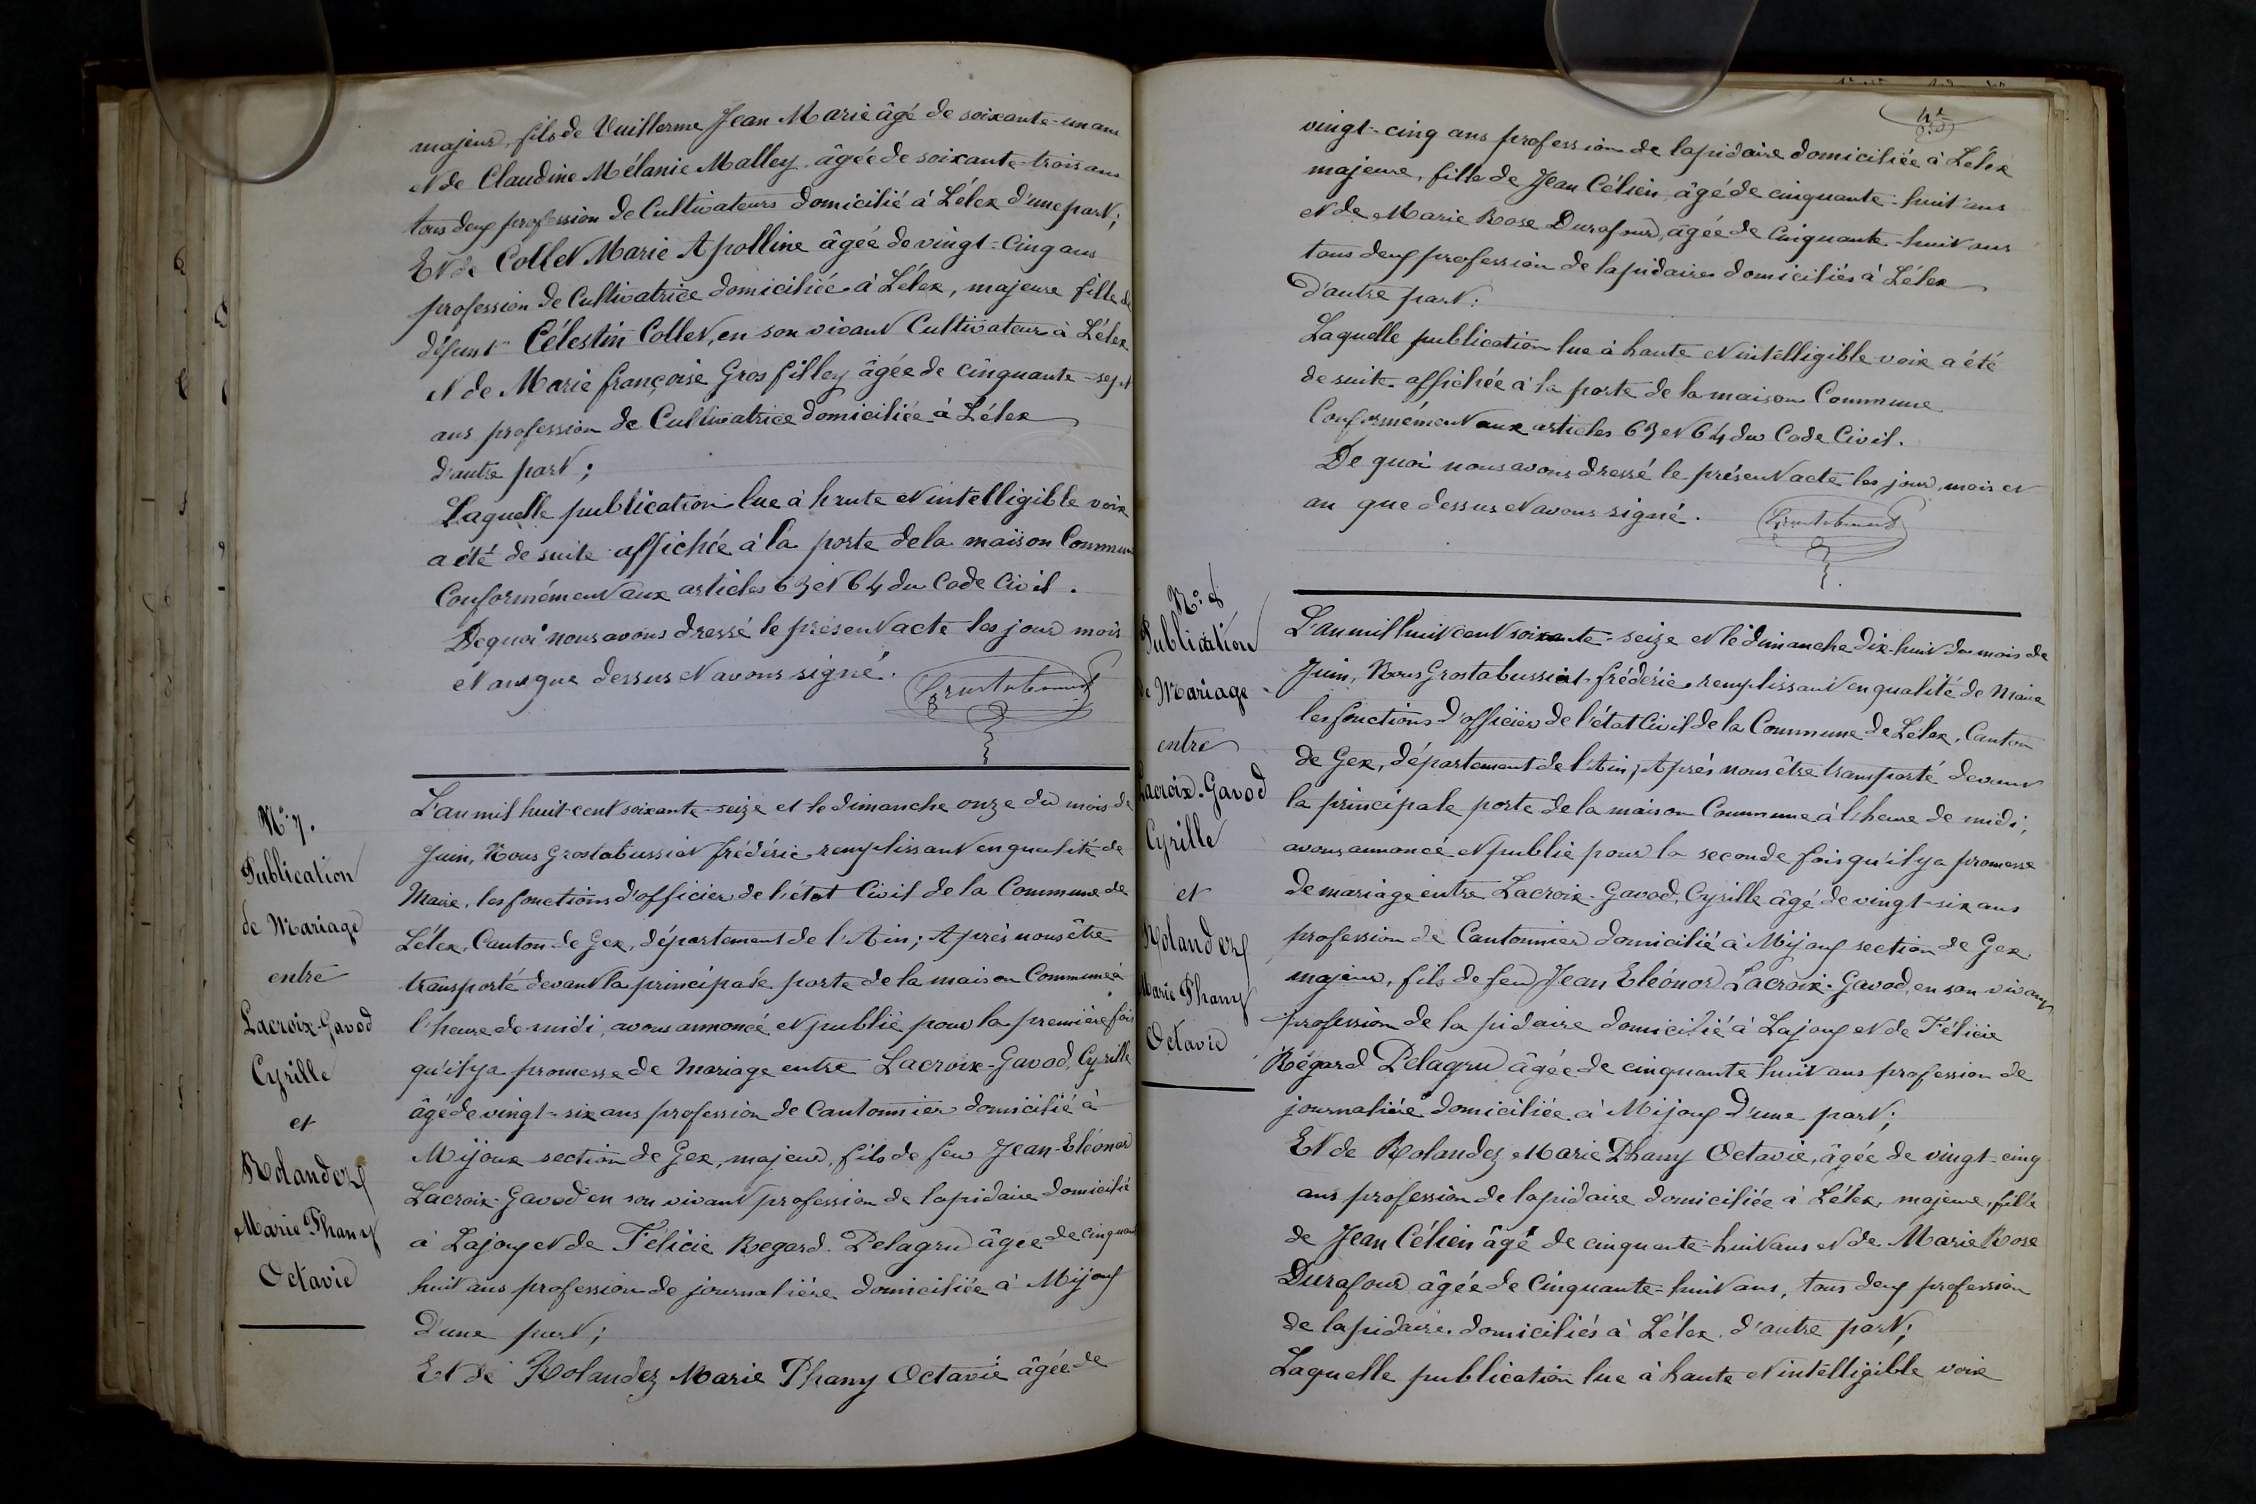 majeur, fils de Vuillerme Jean Marie âgé de soixante-un ans
et de Claudine Mélanie Malley âgée de soixante-trois ans
tous deux profession de Cultivateurs domicilié à Lélex d'une part;
Et de Collet Marie Apolline âgée de vingt-cinq ans
profession de Cultivatrice domiciliée à Lélex, majeure fille de
défunt Célestin Collet, en son vivant Cultivateur à Lélex
et de Marie françoise Gros filley âgée de cinquante-sept
ans profession de Cultivatrice domiciliée à Lélex
d'autre part;
Laquelle publication lue à haute et intelligible voix
a été de suite affichée à la porte de la maison Commune
Conformément aux articles 63 et 64 du Code Civil.
De quoi nous avons dressé le présent acte les jour mois
et an que dessus et avons signé.
N° 7.
Publication
de Mariage
entre
Lacroix-Gavod
Cyrille
et
Rolandez
Marie Phany
Octavie
L'an mil huit-cent soixante-seize et le dimanche onze du mois de
Juin, Nous Grostabussiat frédéric remplissant en qualité de
Maire, les fonctions d'officier de l'état Civil de la Commune de
Lélex, Canton de Gex, département de l'Ain; Après nous être
transporté devant la principale porte de la maison Commune à
l'heure de midi, avons annoncé et publié pour la première fois
qu'il y a promesse de mariage entre Lacroix-Gavod, Cyrille
âgé de vingt-six ans profession de Cantonnier domicilié à
Mijoux section de Gex, majeur, fils de feu Jean-Eléonor
Lacroix-Gavod en son vivant profession de lapidaire domicilié
à Lajoux et de Félicie Regard Pelagru âgée de cinquante
huit ans profession de journalière domiciliée à Mijoux
D'une part;
Et de Rolandez Marie Phany Octavie âgée de
vingt-cinq ans profession de lapidaire domiciliée à Lélex
majeure, fille de Jean Célien âgé de cinquante-huit ans
et de Marie Rose Durafour, âgée de Cinquante-huit ans
tous deux profession de lapidaires domiciliés à Lélex
D'autre part:
Laquelle publication lue à haute et intelligible voix a été
de suite affichée à la porte de la maison Commune
Conformément aux articles 63 et 64 du Code Civil.
De quoi nous avons dressé le présent acte les jour, mois et
an que dessus et avons signé.
N° 8
Publication
de Mariage
entre
Lacroix-Gavod
Cyrille
et
Rolandez
Marie Phany
Octavie
L'an mil huit cent soixante-seize et le dimanche dix-huit du mois de
Juin, Nous Grostabussiat frédéric remplissant en qualité de Maire
les fonctions d'officier de l'état Civil de la Commune de Lélex, Canton
de Gex, département de l'Ain, Après nous être transporté devant
la principale porte de la maison Commune à l'heure de midi,
avons annoncé et publié pour la seconde fois qu'il y a promesse
de mariage entre Lacroix-Gavod, Cyrille âgé de vingt-six ans
profession de Cantonnier domicilié à Mijoux section de Gex
majeur, fils de feu Jean Eléonor Lacroix-Gavod, en son vivant
profession de lapidaire domicilié à Lajoux et de Félicie
Régard Pelagru âgée de cinquante huit ans profession de
journalière domiciliée à Mijoux D'une part;
Et de Rolandez Marie Phany Octavie, âgée de vingt-cinq
ans profession de lapidaire domiciliée à Lélex, majeure, fille
de Jean Célien âgé de cinquante-huit ans et de Marie Rose
Durafour âgée de Cinquante-huit ans, tous deux profession
de lapidaire domiciliés à Lélex d'autre part;
Laquelle publication lue à haute et intelligible voix